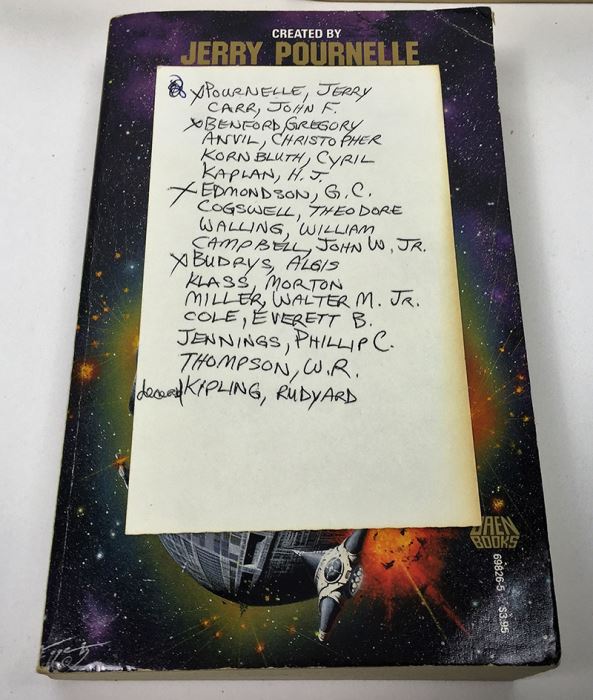 CREATED BY
JERRY POURNELLE
X POURNELLE, JERRY
CARR, JOHN F.
X BENFORD, GREGORY
ANVIL, CHRISTOPHER
KORNBLUTH, CYRIL
KAPLAN, H.J.
X EDMONDSON, G.C.
COGSWELL, THEODORE
WALLING, WILLIAM
CAMPBELL, JOHN W. JR.
X BUDRYS, ALGIS
KLASS, MORTON
MILLER, WALTER M. JR.
COLE, EVERETT B.
JENNINGS, PHILLIP C.
THOMPSON, W.R.
KIPLING, RUDYARD
BAEN
BOOKS
69826-5 $3.95